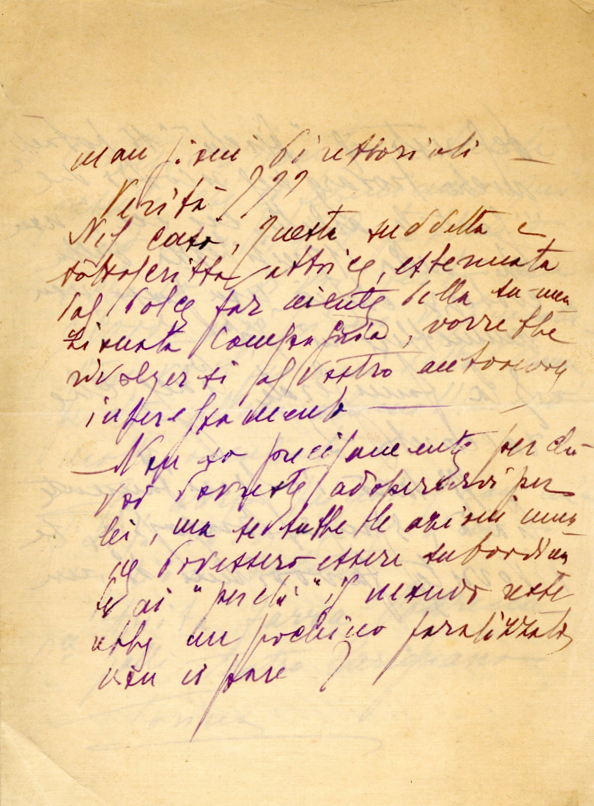 mansioni direttoriali —
Verità???
Nel caso, questa suddetta e
sottoscritta attrice, estenuata
dal dolce far niente della su men
zionata Compagnia, vorrebbe
rivolgersi al Vostro autorevole
interessamento —
Non so precisamente perchè
Voi dovreste adoperarvi per
lei, ma se tutte le azioni uma
ne dovessero essere subordina
te ai "perchè" il mondo reste
rebbe un pochino paralizzato
non vi pare?